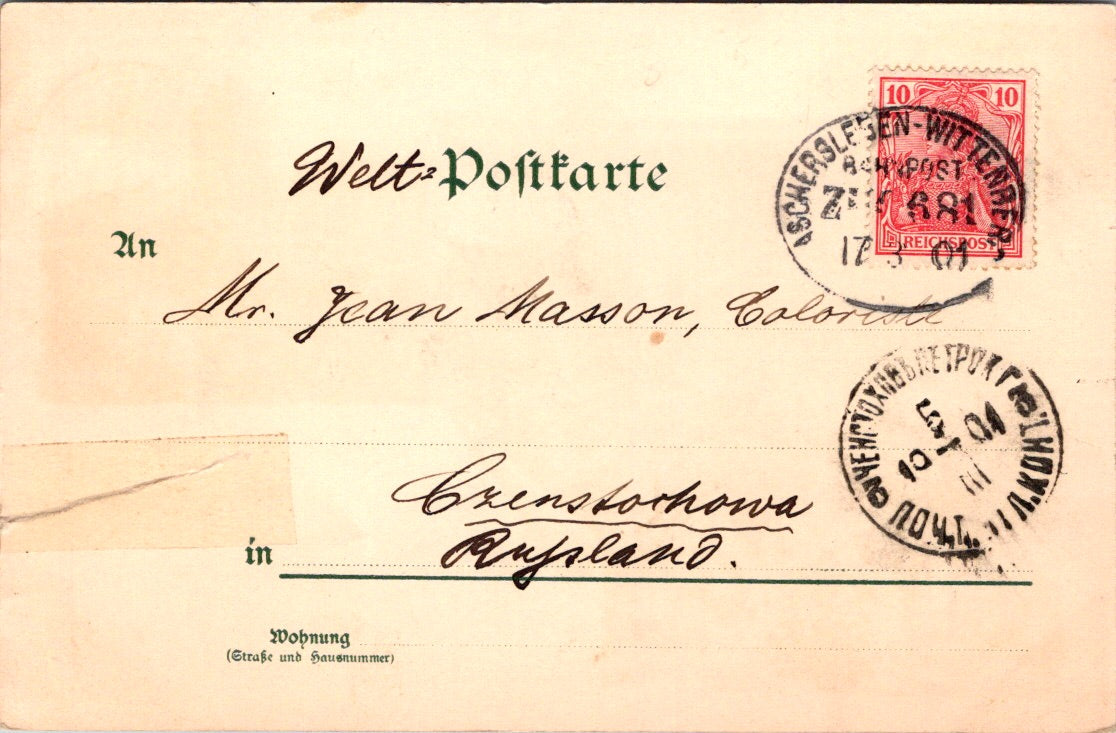 10 10
ASCHERSLEBEN-WITTENBERG
BAHNPOST
ZUG 681
17 3 01
REICHSPOST
Welt-Postkarte
An
Mr. Jean Masson, Colorist
ЧЕНСТОХОВЪ ПЕТРОК. ГУБ.
5
III
01
Czenstochowa
in Russland.
Wohnung
(Straße und Hausnummer)